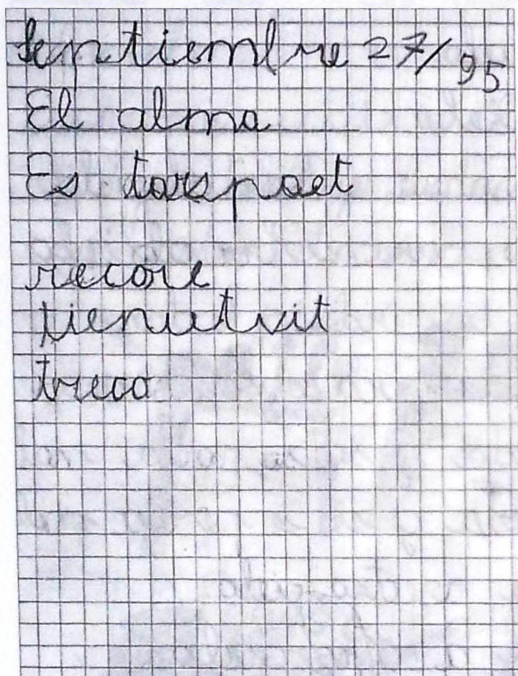 Septiembre 27/95
El alma
Es torspoet
recore
tienutsit
treco